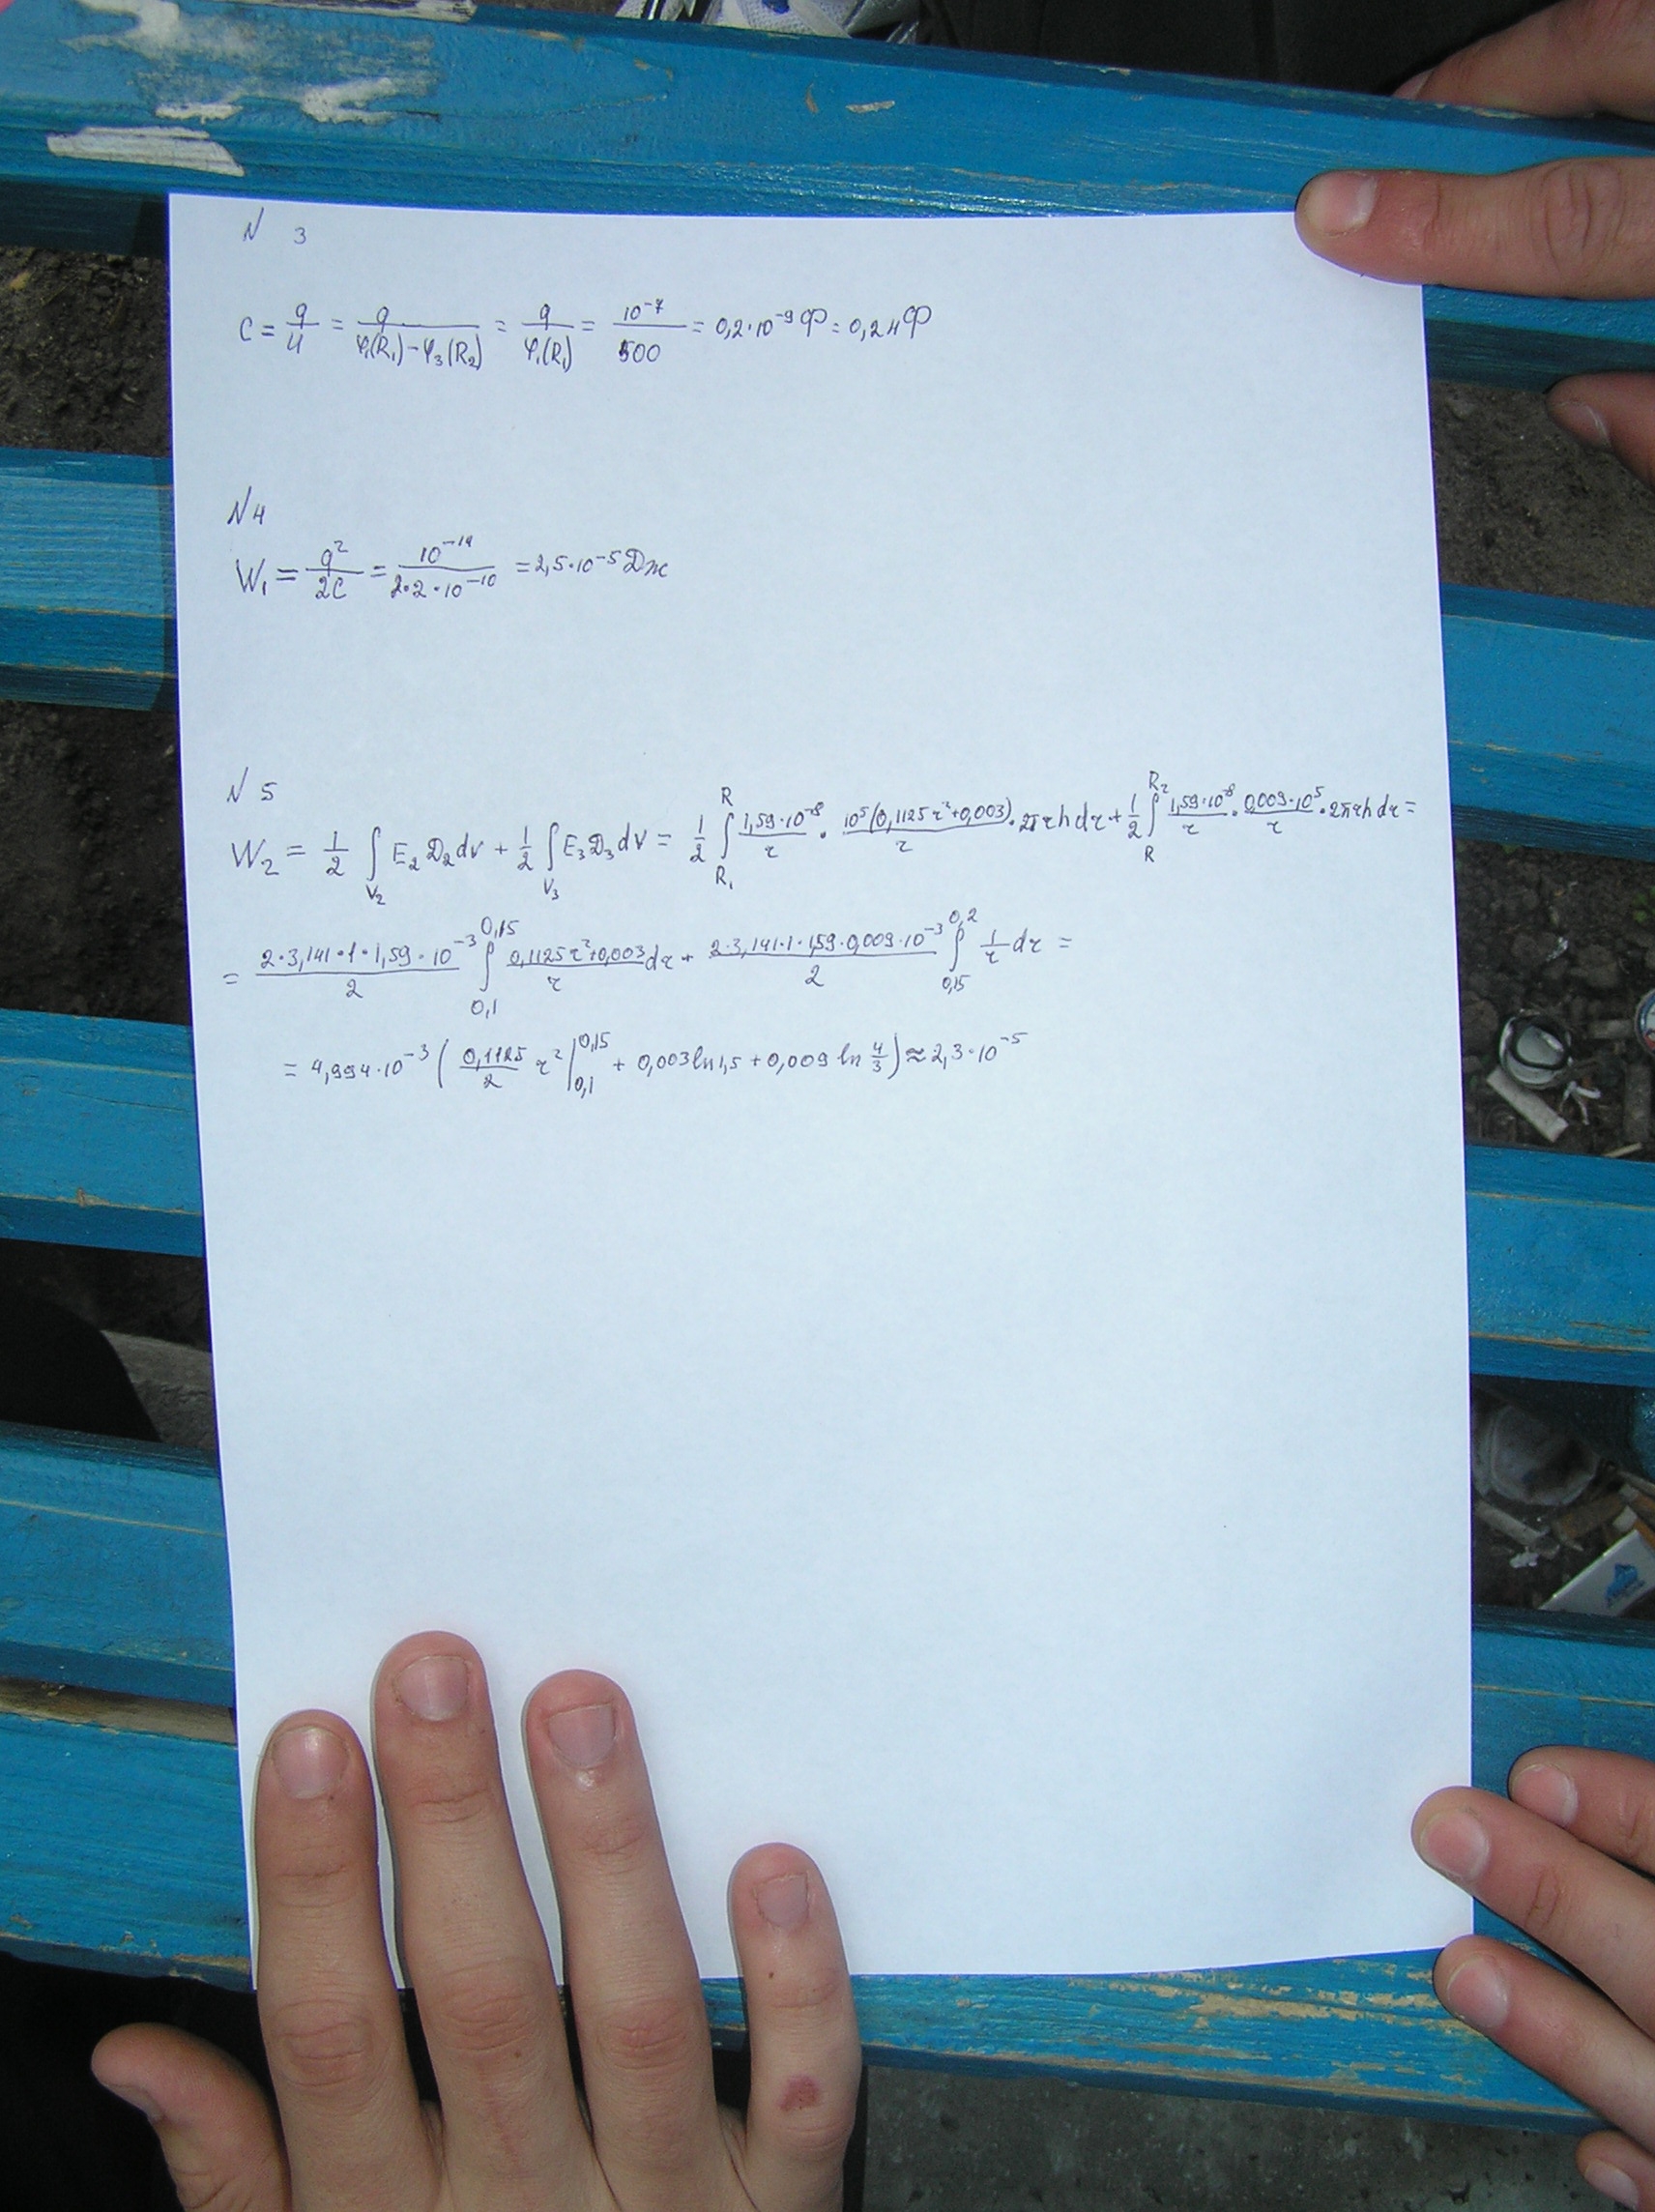 N 3
C = q/U = q/(φ₁(R₁) − φ₃(R₂)) = q/φ₁(R₁) = 10⁻⁷/500 = 0,2·10⁻⁹ Ф = 0,2 нФ
N 4
W₁ = q²/2C = 10⁻¹⁴/(2·2·10⁻¹⁰) = 2,5·10⁻⁵ Дж
N 5
W₂ = 1/2 ∫_V₂ E₂D₂dv + 1/2 ∫_V₃ E₃D₃dv = 1/2 ∫_R₁^R 1,59·10⁻⁸/r · 10⁵(0,1125r²+0,003)/r · 2πrhdr + 1/2 ∫_R^R₂ 1,59·10⁻⁸/r · 0,009·10⁵/r · 2πrhdr =
= 2·3,141·1·1,59·10⁻³/2 ∫_0,1^0,15 (0,1125r²+0,003)/r dr + 2·3,141·1·1,59·0,009·10⁻³/2 ∫_0,15^0,2 1/r dr =
= 4,994·10⁻³ (0,1125/2 r²|_0,1^0,15 + 0,003ln1,5 + 0,009 ln 4/3) ≈ 2,3·10⁻⁵